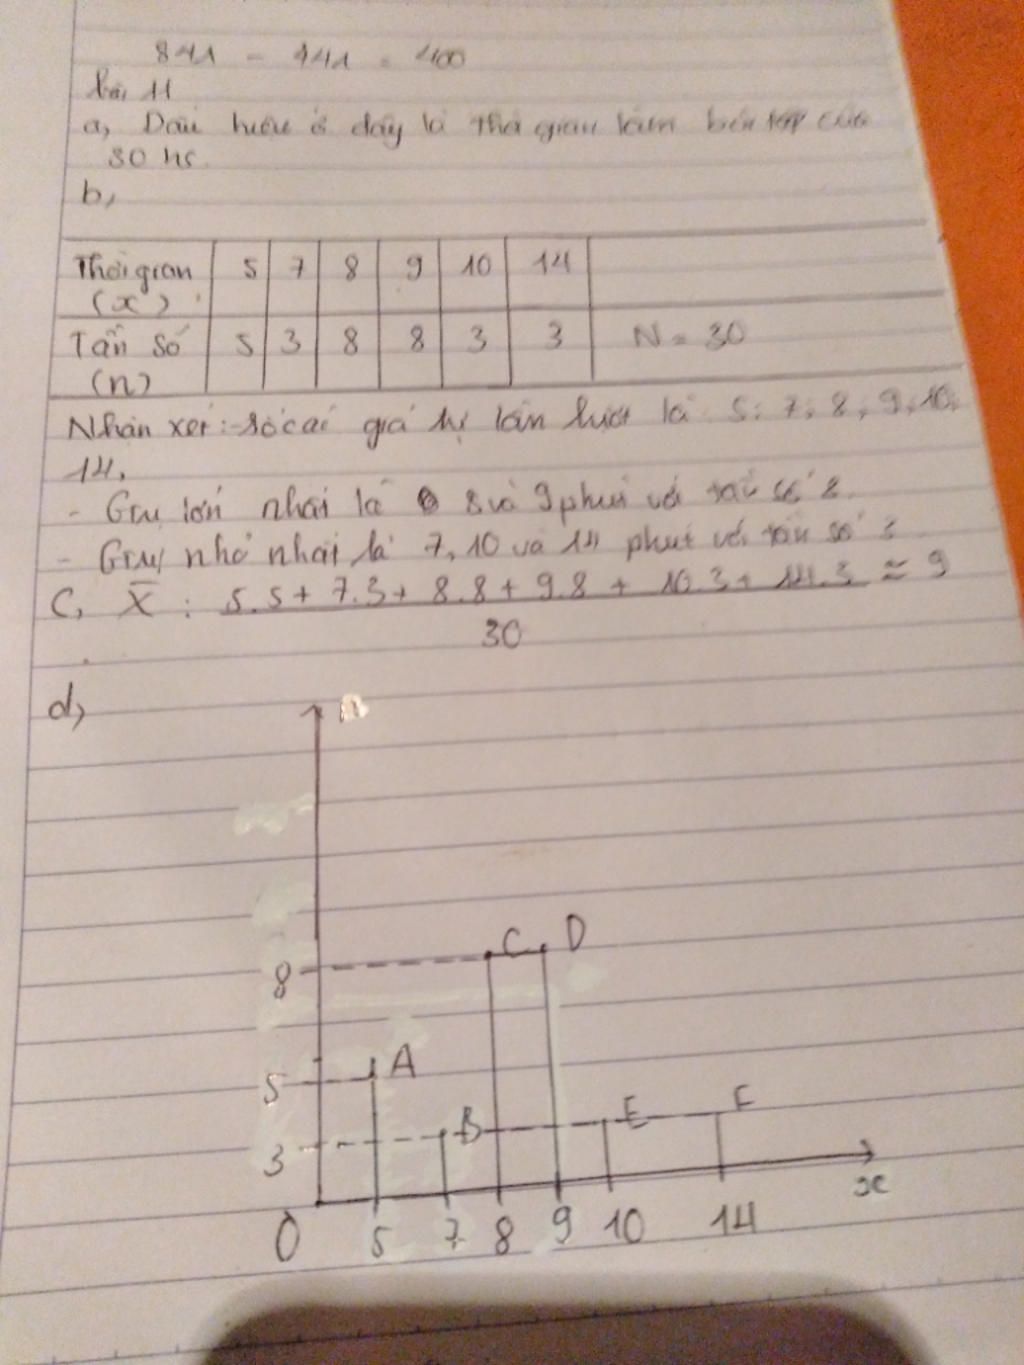 841 - 441 = 400
bài 11
a, Dấu hiệu ở đây là thời gian làm bài tập của
30 hs.
b,
Thời gian (x) 5 7 8 9 10 14
Tần số (n) 5 3 8 8 3 3 N = 30
Nhận xét: - số các giá trị lần lượt là 5; 7; 8; 9; 10;
14.
- Gtrị lớn nhất là 8 và 9 phút với tần số 8.
- Gtrị nhỏ nhất là 7, 10 và 14 phút với tần số 3
C, X̄ : 5.5 + 7.3 + 8.8 + 9.8 + 10.3 + 14.3 ≈ 9
30
d,
n
C D
8
A
5
B E F
3
x
O 5 7 8 9 10 14